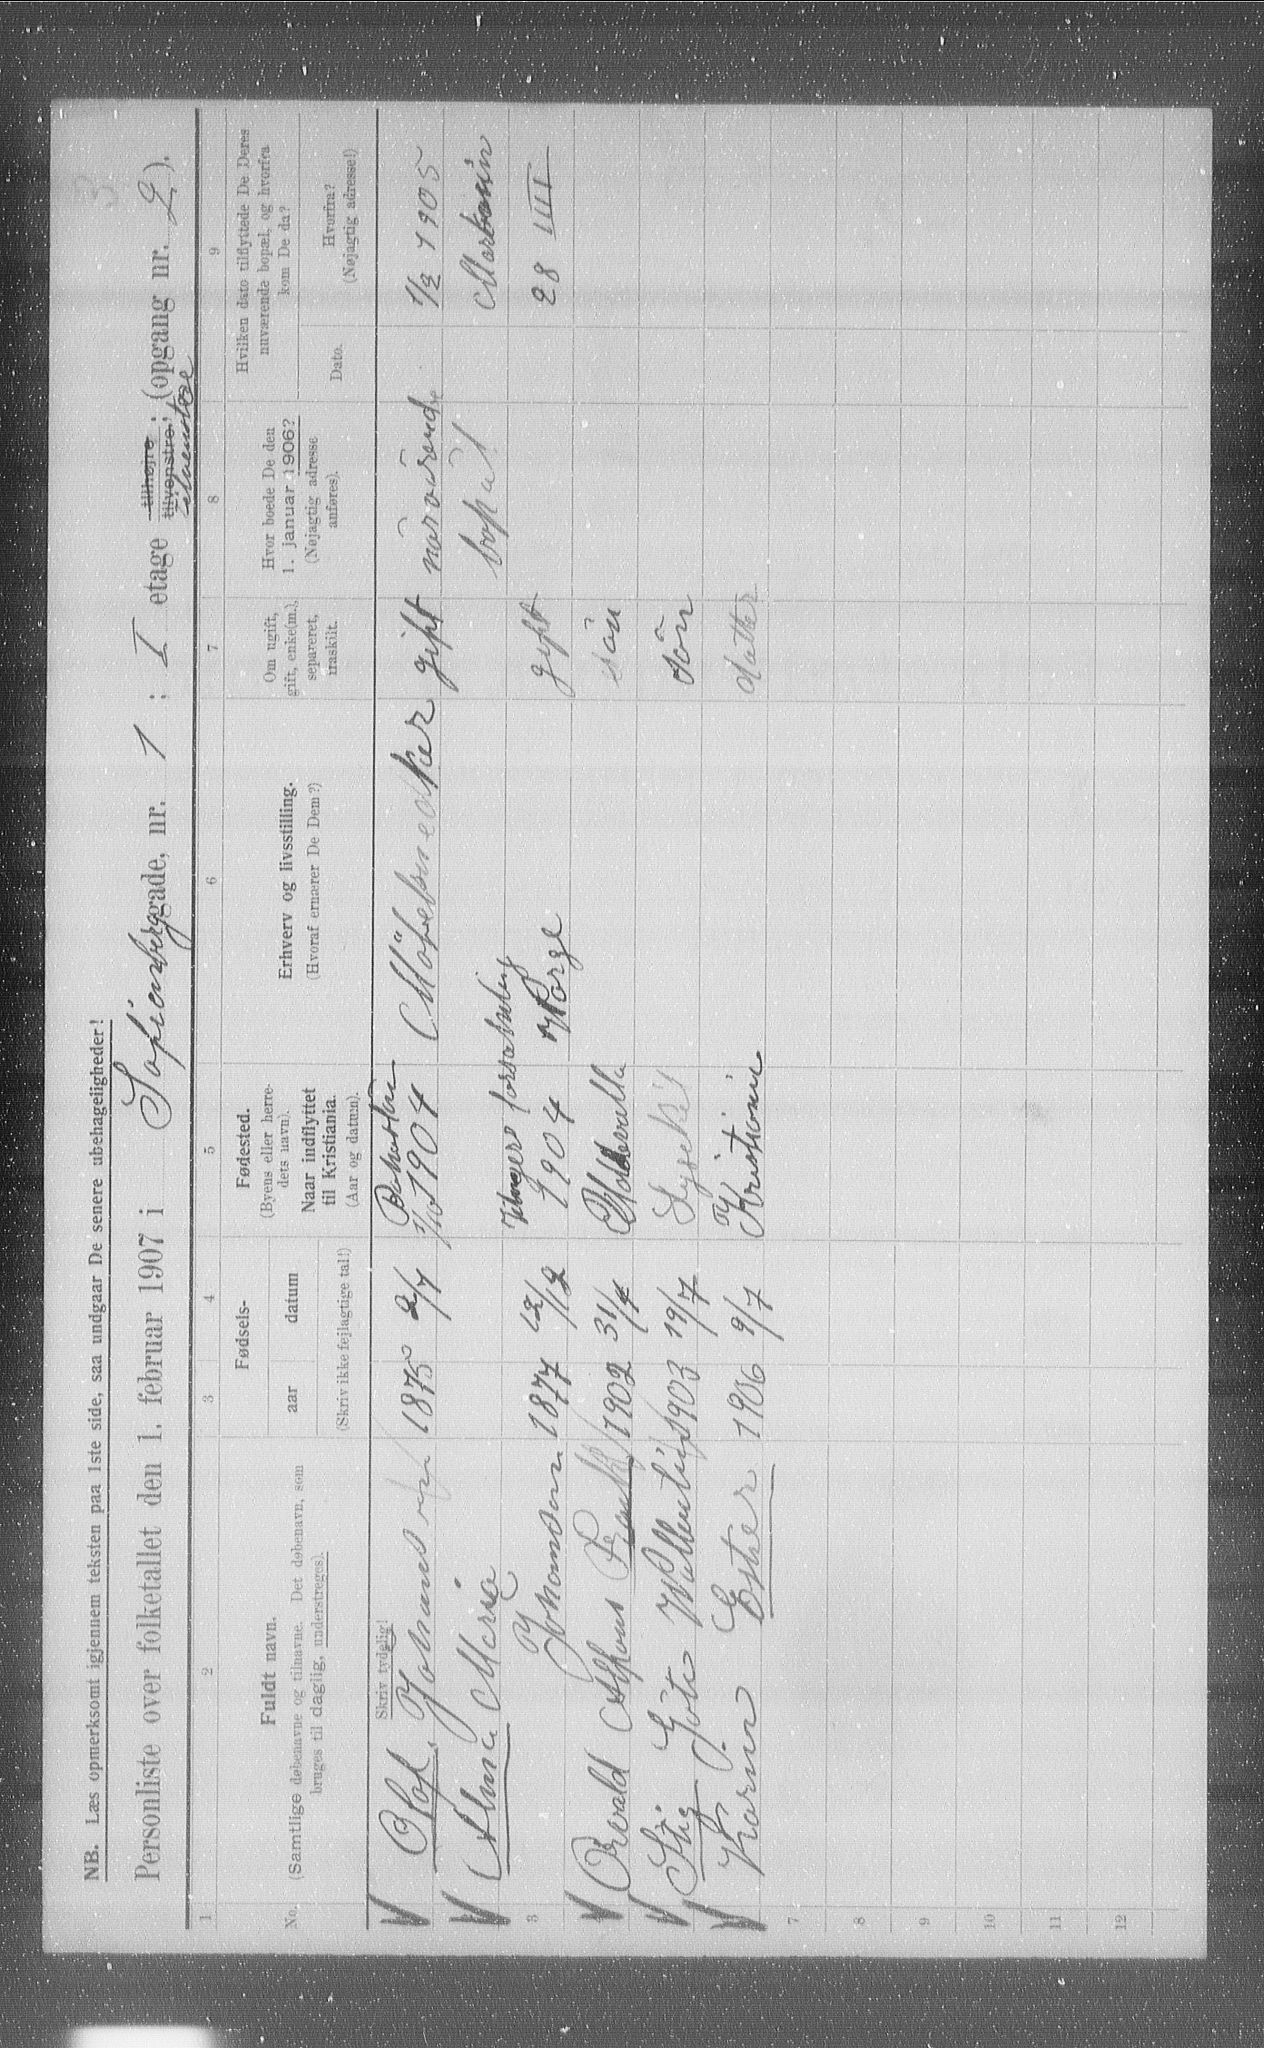 NB. Læs opmerksomt igjennem teksten paa 1ste side, saa undgaar De senere ubehageligheder!
Personliste over folketallet den 1. februar 1907 i Sofienberggade, nr. 1 ; I etage tilhøjre ; (opgang nr. 2).
tilvenstre;
tilvenstre
1 2 3 4 5 6 7 8 9
No.
Fuldt navn.
(Samtlige døbenavne og tilnavne. Det døbenavn, som
bruges til daglig, understreges).
Fødsels-
aar datum
(Skriv ikke fejlagtige tal!)
Fødested.
(Byens eller herre-
dets navn).
Naar indflyttet
til Kristiania.
(Aar og datum).
Erhverv og livsstilling.
(Hvoraf ernærer De Dem?)
Om ugift,
gift, enke(m.),
separeret,
fraskilt.
Hvor boede De den
1. januar 1906?
(Nøjagtig adresse
anføres).
Hvilken dato tilflyttede De Deres
nuværende bopæl, og hvorfra
kom De da?
Dato.
Hvorfra?
(Nøjagtig adresse!)
Skriv tydelig!
Olof Johansson 1875 2/7 1904 Möbelsnedker gift 1/2 1905
Alma Maria
Johansson 1877 12/12 1904 Norge gift 28 III
bopäl
Osvald Alfons 1902 31/ Uddevalla sön
Stig Göte 1903 19/7 Lysekil sön
Karin Ester 1906 9/7 Kristiania datter
3
7
8
9
10
11
12